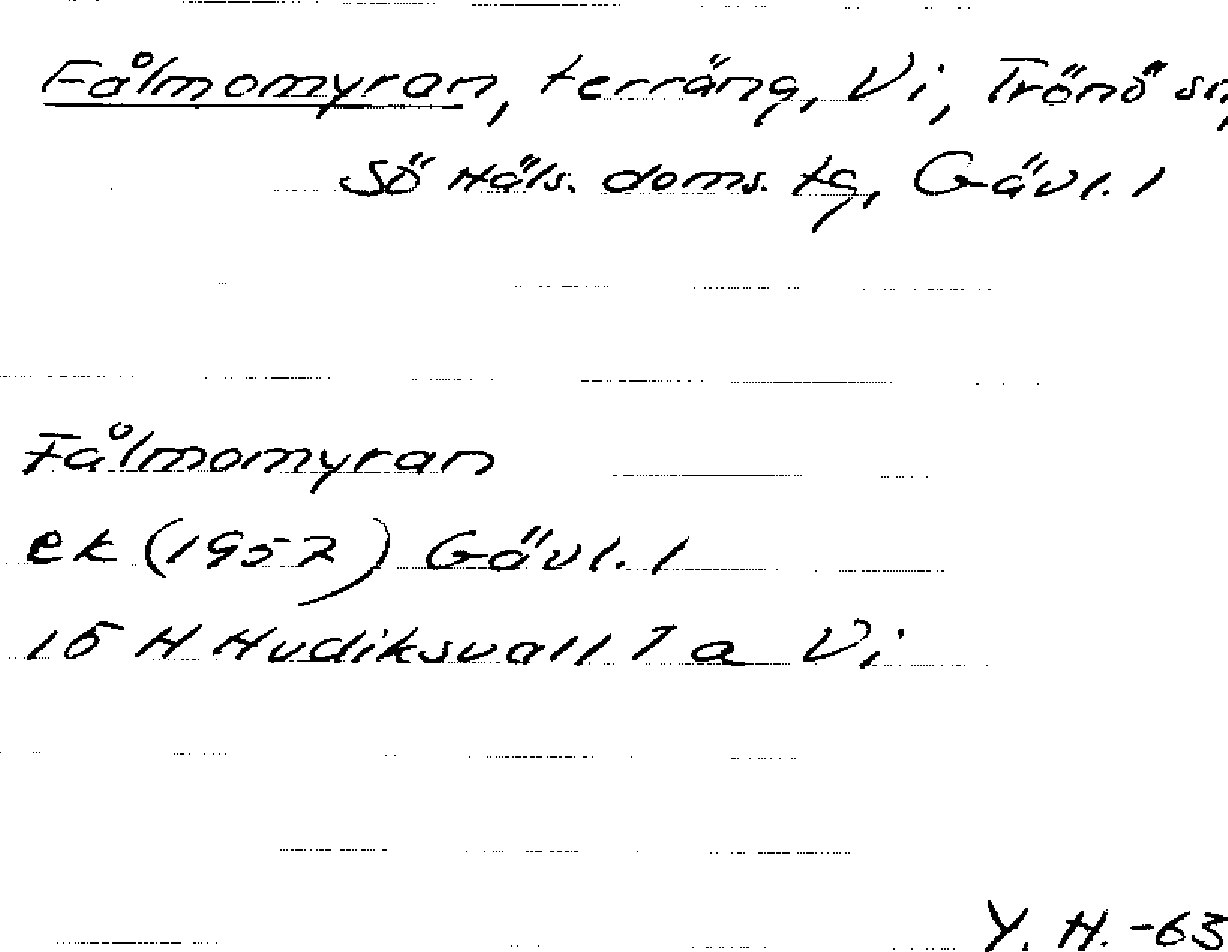 Fålmomyran, terräng, Vi, Trönö sn,
Sö Häls. doms. tg, Gävl. l
Fålmomyran
ek (1952) Gävl. l
15 H Hudiksvall 7 a Vi
Y. H. -63